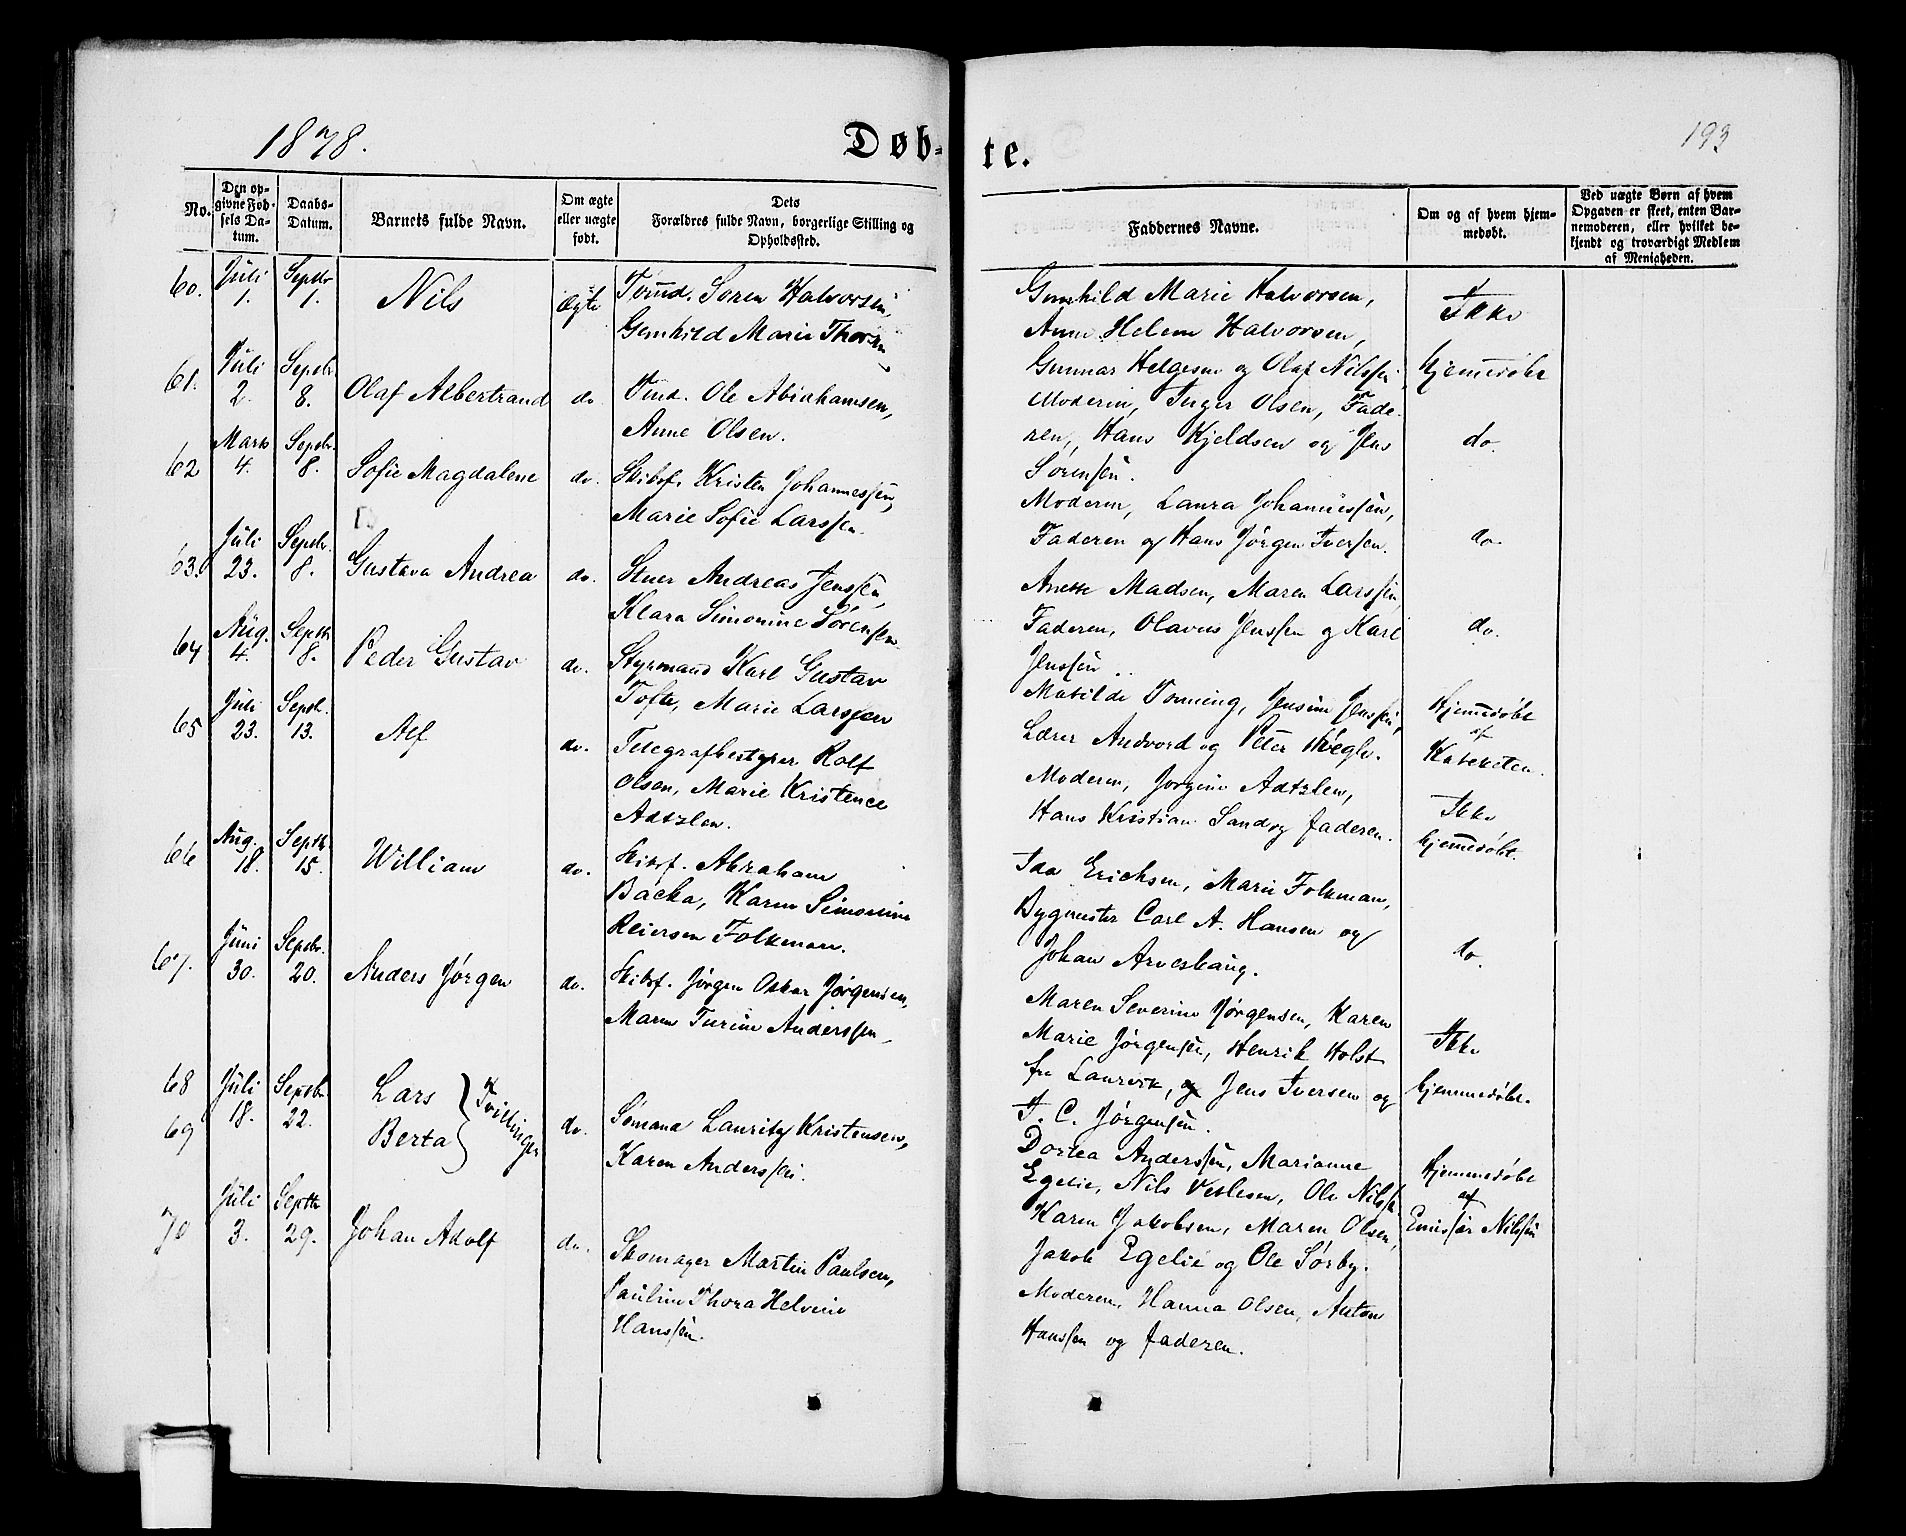 1878.
Døb-
te.
193
No.
Den op-
givne Fød-
sels Da-
tum.
Daabs-
Datum.
Barnets fulde Navn.
Om ægte
eller uægte
født.
Dets
Forældres fulde Navn, borgerlige Stilling og
Opholdssted.
Faddernes Navne.
Om og af hvem hjem-
medøbt.
Ved uægte Børn af hvem
Opgaven er skeet, enten Bar-
nemoderen, eller hvilket be-
kjendt og troværdigt Medlem
af Menigheden.
60. Juli 1. Septbr 1. Nils Ægte Søren Halvorsen,
Gunhild Marie Thorsen
61. Juli 2. Septbr. 8. Olaf Albertrand do. Ole Abrahamsen,
Anne Olsen.
62 Marts 4. Septbr. 8. Sofie Magdalene do. Skibsf. Kristen Johannessen,
Marie Sofie Larssen.
63. Juli 23. Septbr. 8. Gustava Andrea do. Andreas Jenssen,
Klara Simonine Sørensen
64 Aug. 4. Septbr 8. Peder Gustav do. Styrmand Karl Gustav
Tofte, Marie Larssen
65 Juli 23. Septbr. 13. Alf do. Telegrafbestyrer Rolf
Olsen, Marie Kristence
Adtzlen.
66 Aug. 18. Septbr 15. William do. Skibsf. Abraham
Backa, Karen Simonine
Reiersen Folkman.
67. Juni 30. Septbr. 20. Anders Jørgen do. Skibsf. Jørgen Oskar Jørgensen,
Maren Turine Anderssen
68 Juli 18. Septbr. 22. Lars Tvillinger
69 Berta do. Sømand Lauritz Kristensen,
Karen Anderssen.
70 Juli 3. Septbr 29. Johan Adolf do. Skomager Martin Paulsen,
Pauline Thora Helvine
Hanssen.
Gunhild Marie Halvorsen,
Anne Helene Halvorsen,
Gunnar Helgesen og Olaf Nilssen
Moderen, Inger Olsen, Fade-
ren, Hans Kjeldsen og Jens
Sørensen.
Moderen, Laura Johannessen,
Faderen og Hans Jørgen Iversen.
Anette Madsen, Maren Larssen,
Faderen, Olavus Jenssen og Karl
Jenssen
Matilde Tonning, Jensine Jenssen,
Lærer Andvord og Peter
Moderen, Jørgine Adtzlen,
Hans Kristian Sand og Faderen.
Ida Erichsen, Marie Folkman,
Bygmester Carl A. Hansen og
Johan Arveshaug.
Maren Severine Jørgensen, Karen
Marie Jørgensen, Henrik Holst
fra Laurvik, og Jens Iversen og
T. C. Jørgensen.
Dortea Anderssen, Marianne
Egelie, Nils Veslesen, Ole Nilssen
Karen Jakobsen, Maren Olsen,
Jakob Egelie og Ole Sørby.
Moderen, Hanna Olsen, Anton
Hanssen og Faderen.
Ikke
hjemmedøbt
do.
do.
do.
Hjemmedøbt
af
Kateketen.
Ikke
hjemmedøbt.
do.
Ikke
hjemmedøbt.
Hjemmedøbt
af
Emissær Nilssen